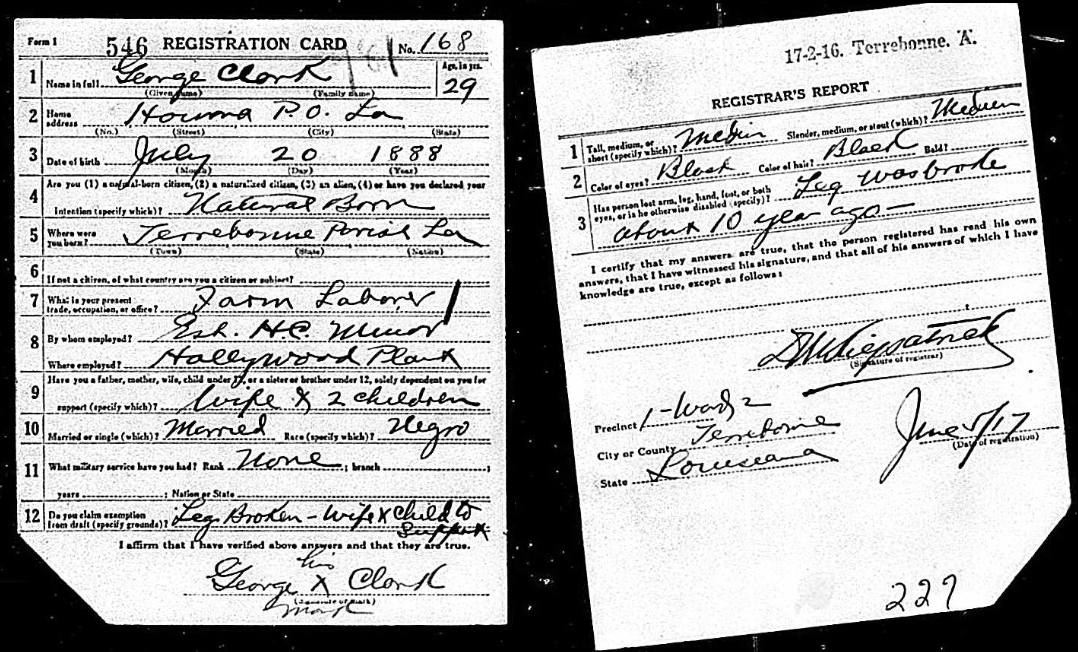 Form 1 546 REGISTRATION CARD No. 168
1 Name in full George Clark Age, in yrs. 29
(Given name) (Family name)
2 Home address Houma P.O. La
(No.) (Street) (City) (State)
3 Date of birth July 20 1888
(Month) (Day) (Year)
4 Are you (1) a natural-born citizen, (2) a naturalized citizen, (3) an alien, (4) or have you declared your
intention (specify which)? Natural Born
5 Where were you born? Terrebonne Parish La
(Town) (State) (Nation)
6 If not a citizen, of what country are you a citizen or subject?
7 What is your present trade, occupation, or office? Farm Laborer
8 By whom employed? Est. H.C. Minor
Where employed? Hollywood Plant
9 Have you a father, mother, wife, child under 12, or a sister or brother under 12, solely dependent on you for
support (specify which)? Wife & 2 children
10 Married or single (which)? Married Race (specify which)? Negro
11 What military service have you had? Rank None ; branch ;
years ; Nation or State
12 Do you claim exemption from draft (specify grounds)? Leg Broken - Wife & Child to
Support
I affirm that I have verified above answers and that they are true.
his
George X Clark
(Signature or mark)
mark
17-2-16. Terrebonne. A.
REGISTRAR'S REPORT
1 Tall, medium, or short (specify which)? Medium Slender, medium, or stout (which)? Medium
2 Color of eyes? Black Color of hair? Black Bald?
3 Has person lost arm, leg, hand, foot, or both eyes, or is he otherwise disabled (specify)? Leg was broke
about 10 year ago-
I certify that my answers are true, that the person registered has read his own
answers, that I have witnessed his signature, and that all of his answers of which I have
knowledge are true, except as follows:
Kilpatrick
(Signature of registrar)
Precinct 1-Ward 2
City or County Terrebonne
State Louisiana
June 5/17
(Date of registration)
227